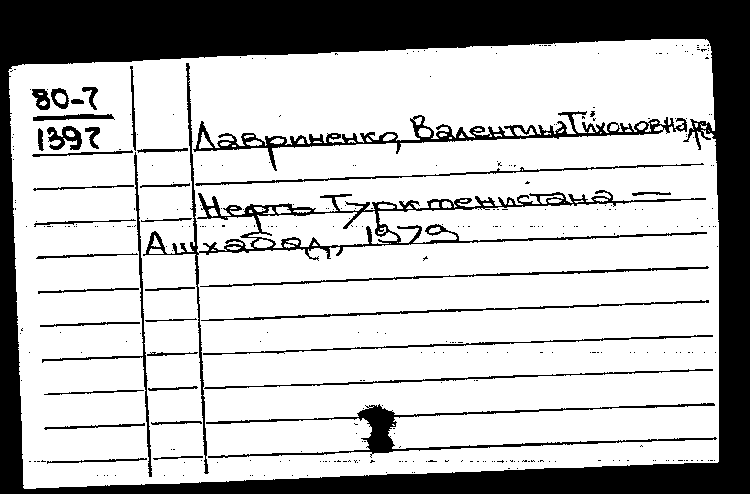 80-7
1397
Лавриненко, Валентина Тихоновна, ред.
Нефть Туркменистана —
Ашхабад, 1979